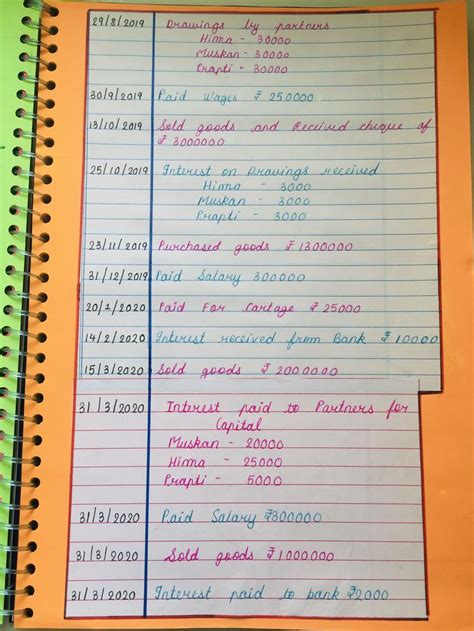 29/8/2019 Drawings by partners
Hima - 30000
Muskan - 30000
Prapti - 30000
30/9/2019 Paid Wages ₹ 250000
13/10/2019 Sold goods and Received cheque of
₹ 3000000
25/10/2019 Interest on Drawings received
Hima - 3000
Muskan - 3000
Prapti - 3000
23/11/2019 Purchased goods ₹ 1300000
31/12/2019 Paid Salary 300000
20/1/2020 Paid For Cartage ₹ 25000
14/2/2020 Interest received from Bank ₹ 10000
15/3/2020 Sold goods ₹ 2000000
31/3/2020 Interest paid to Partners for
Capital
Muskan - 20000
Hima - 25000
Prapti - 5000
31/3/2020 Paid Salary ₹300000
31/3/2020 Sold goods ₹ 1000000
31/3/2020 Interest paid to bank ₹2000